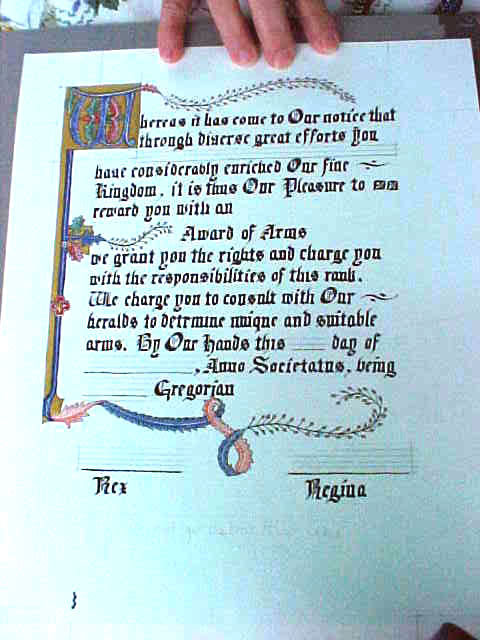 Whereas it has come to Our notice that
through diverse great efforts you
have considerably enriched Our fine
Kingdom, it is thus Our Pleasure to
reward you with an
Award of Arms
we grant you the rights and charge you
with the responsibilities of this rank.
We charge you to consult with Our
heralds to detrmine unique and suitable
arms. By Our Hands this day of
, Anno Societatus, being
Gregorian
Rex Regina